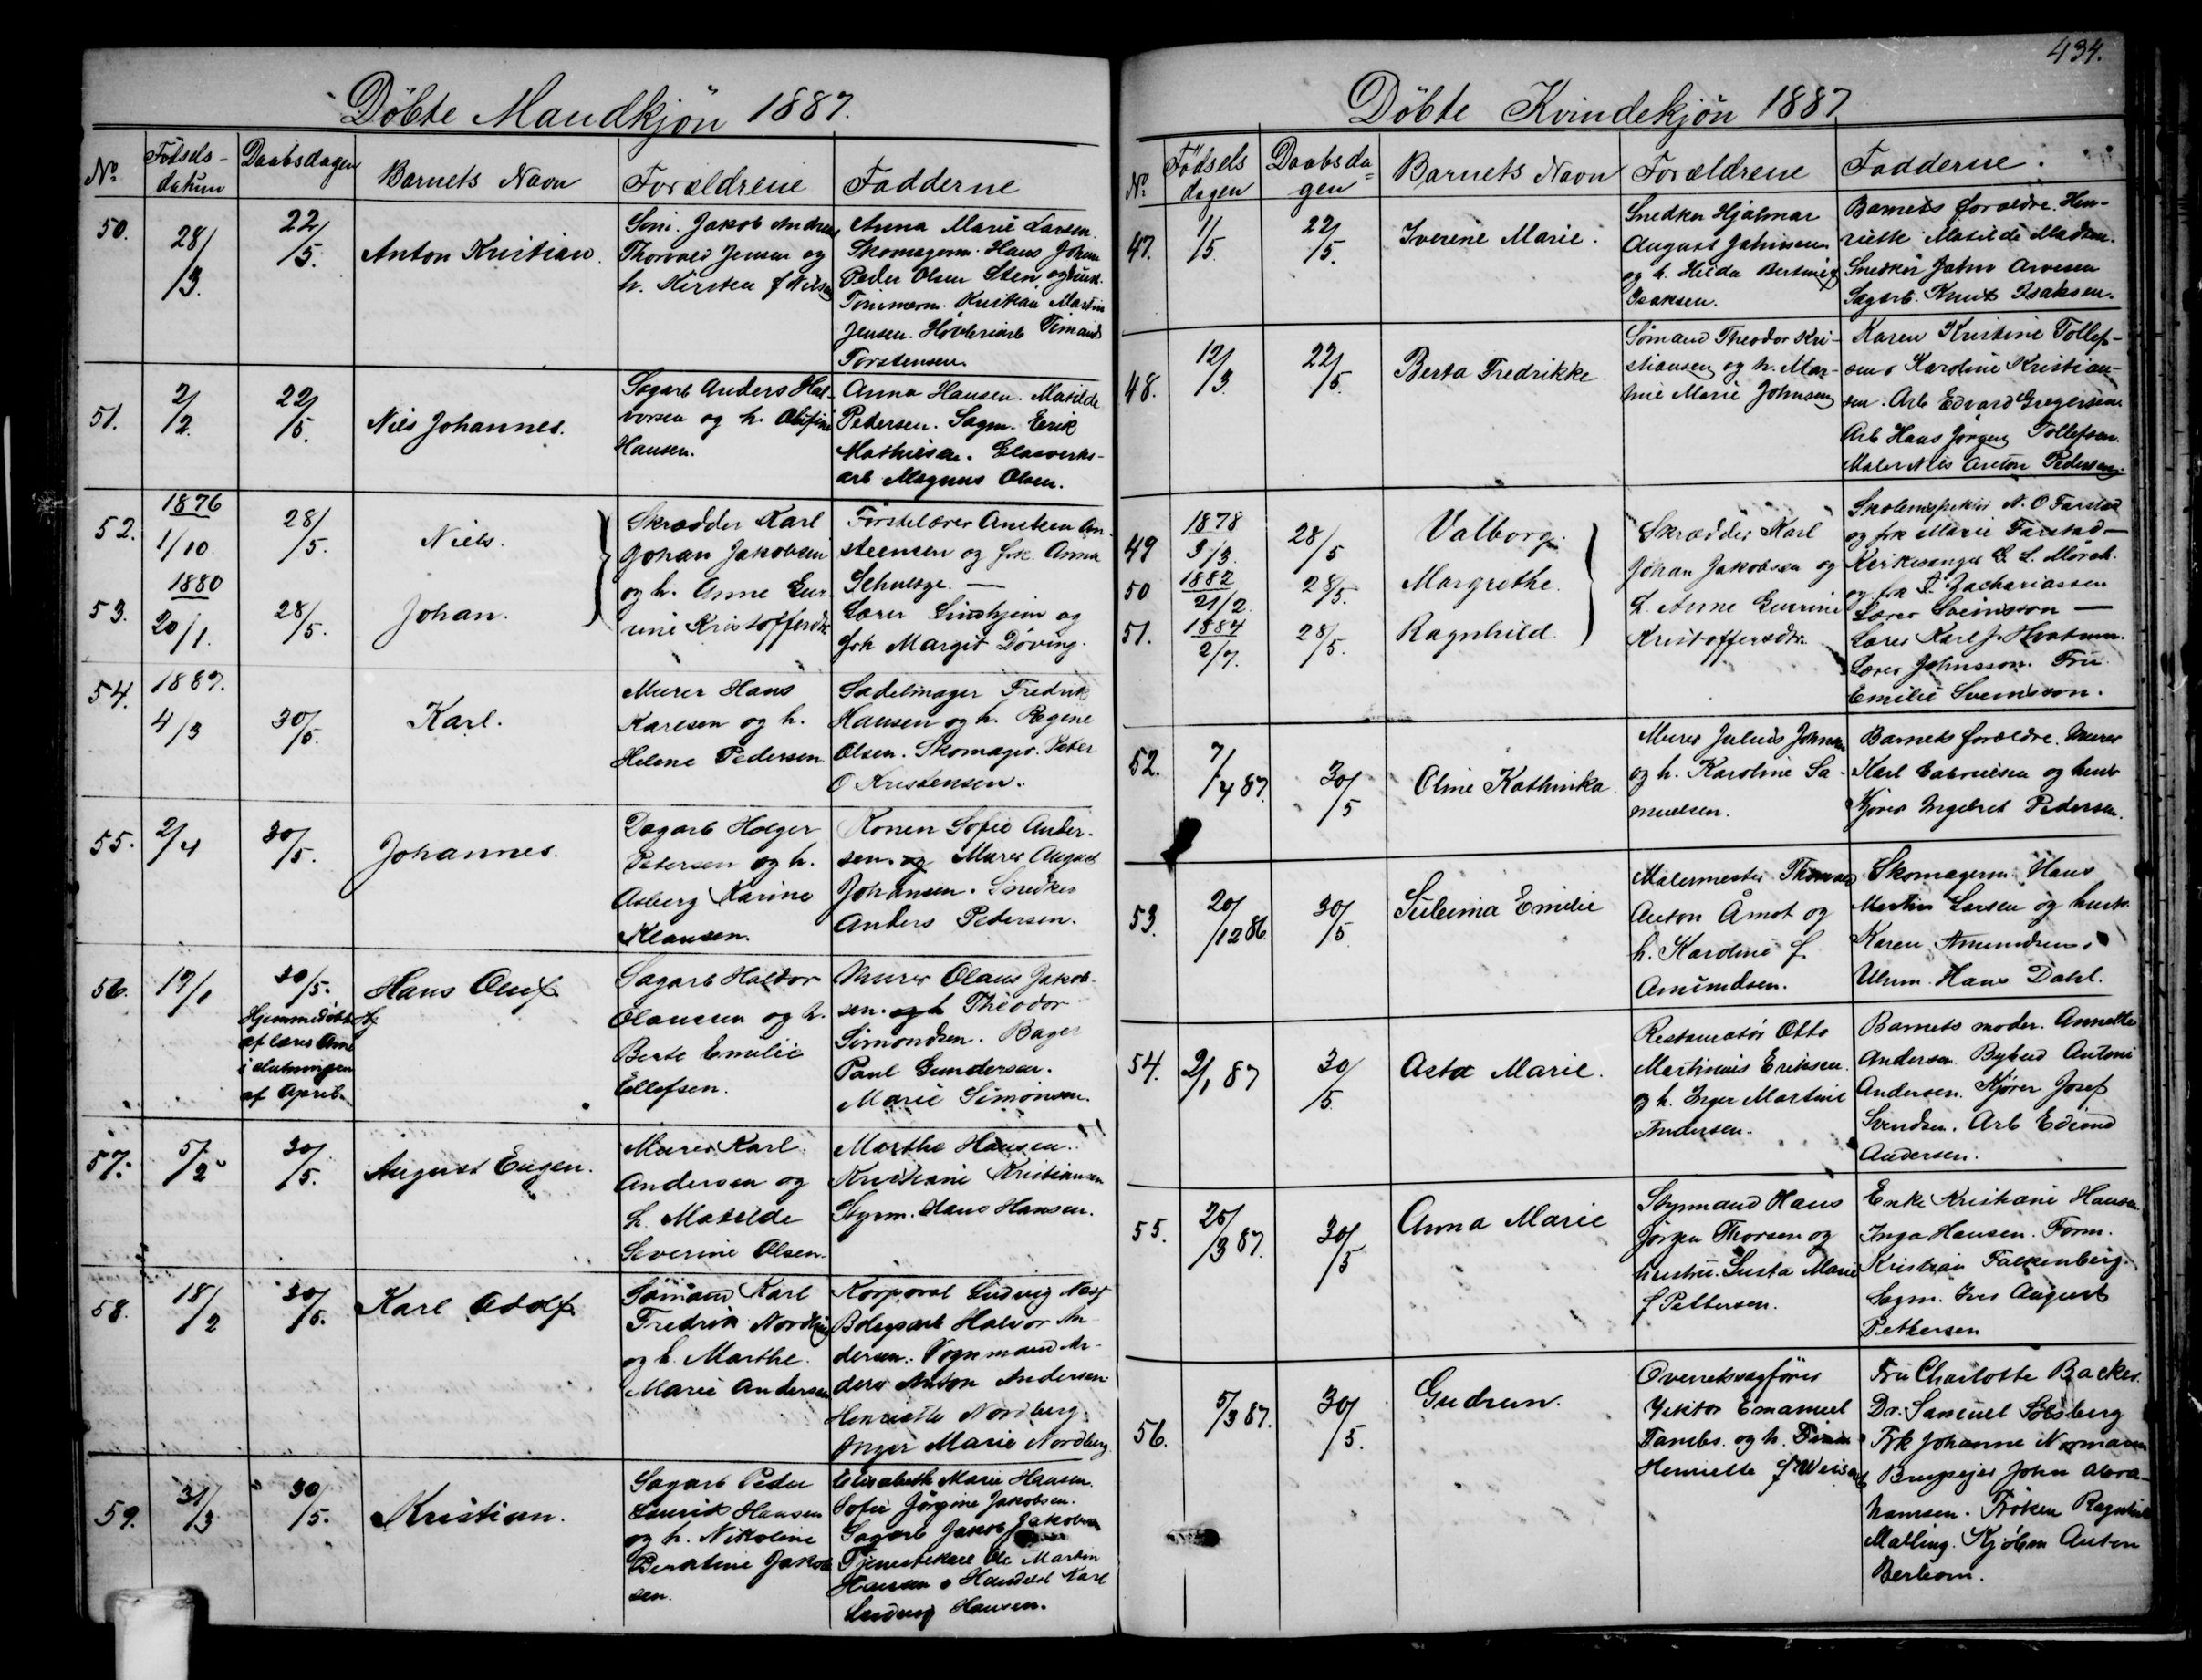 Döbte Mandkjön 1887.
No. Födsels-datum Daabsdagen Barnets Navn Forældrene Fadderne
50. 28/3. 22/5. Anton Kristian.
Jakob Andreas
Thorvald Jensen og
h. Kirsten f Nilsen
Anna Marie Larsen.
Skomagerm. Hans Johan
Peder Olsen Sten og hust.
Tømmerm. Kristian Martin
Jensen. Høvleriarb
Torstensen
51. 2/2. 22/5. Nils Johannes.
Sagarb Anders Hal-
vorsen og h. Olufine
Hansen.
Anna Hansen. Matilde
Pedersen. Sagm. Erik
Mathisen. Glasverks-
arb Magnus Olsen.
52. 1876 1/10. 28/5. Niels.
53. 1880 20/1. 28/5. Johan.
Skrædder Karl
Johan Jakobsen
og h. Anne Gur-
rine Kristoffersdr.
Førstelærer Ansteen An-
steensen og frk. Anna
Schultze. —
Lærer Lindhjem og
frk Margit Døving.
54. 1887. 4/3 30/5. Karl.
Murer Hans
Karlsen og h.
Helene Pedersen.
Sadelmager Fredrik
Hansen og h. Regine
Olsen. Skomager. Peter
O Kristensen.
55. 2/4 30/5. Johannes.
Dagarb Holger
Petersen og h.
Asberg Karine
Klausen.
Konen Sofie Ander-
sen og Murer August
Johansen. Snedker
Anders Pedersen.
56. 17/1 30/5. Hans Oluf
Hjemmedøbt
af lærer Arne
i slutningen
af April.
Sagarb Haldor
Olaussen og h.
Berte Emilie
Ellefsen.
Murer Olaus Jakob-
sen. og h Theodor
Simondsen. Bager
Paul Gundersen.
Marie Simonsen.
57. 5/2 30/5. August Eugen.
Murer Karl
Andersen og
h. Matilde
Severine Olsen.
Marthe Hansen.
Kristiane Kristiansen
Styrm. Hans Hansen.
58. 18/2 30/5. Karl Adolf
Sømand Karl
Fredrik Nordberg
og h. Marthe
Marie Andersen
Korporal Ludvig
Bolagsarb Halvor An-
dersen. Vognmand An-
ders Anton Andersen
Henriette Nordberg
Inger Marie Nordberg
59. 31/3 30/5. Kristian.
Sagarb Peder
Laurits Hansen
og h. Nikoline
Berntine Jakob
sen.
Elisabeth Marie Hansen.
Sofie Jørgine Jakobsen.
Sagarb Jakob Jakobsen
Tjenestekarl Ole Martin
Hansen. Handelsb Karl
Ludvig Hansen.
434.
Döbte Kvindekjön 1887
No. Födselsdagen Daabsdagen Barnets Navn Forældrene Fadderne.
47. 1/5. 22/5. Iverine Marie.
Snedker Hjalmar
August Johnsen
og h. Hilda Bertine f
Isaksen.
Barnets forældre. Hen-
riette Matilde Madsen.
Snedker John Arvesen
Sagarb. Knut Isaksen.
48. 12/3. 22/5. Berta Fredrikke.
Sømand Theodor Kri-
stiansen og h. Mar-
tine Marie Johnsen
Karen Kristine Tollef-
sen. Karoline Kristian-
sen. Arb Edvard Gregersen.
Arb Hans Jørgen Tollefsen.
Maler Nils Anton Pedersen.
49 1878 9/3. 28/5 Valborg.
50 1882 21/2. 28/5. Margrethe.
51. 1884 2/7. 28/5. Ragnhild.
Skrædder Karl
Johan Jakobsen og
h. Anne Gurrine
Kristoffersdr.
Skoleinspektør N. O Farstad
og frk Marie Farstad —
Kirkesanger E. L. Mørch.
og frk Zachariassen
Lærer Sveinsson —
Lærer Karl J. Hvatum.
Lærer Johnsson. Fru
Emilie Sveinsson.
52. 7/4 87. 30/5 Oline Kathinka.
Murer Julius Johnsen
og h. Karoline Sa-
muelsen.
Barnets forældre. Murer
Karl Gabrielsen og hust.
Kjører Ingebret Pedersen.
53. 20/12 86. 30/5. Sulinia Emilie
Malermester Thomas
Anton Åmot og
h. Karoline f.
Amundsen.
Skomagerm Hans
Martin Larsen og hustr.
Karen Amundsen.
Urm. Hans Dahl.
54. 2/1 87 30/5. Asta Marie.
Restauratør Otto
Martinius Eriksen
og h. Inger Martine
Andersen.
Barnets moder. Annette
Andersen. Bybud Antoni
Andersen. Kjører Josef
Svendsen. Arb Edvind
Andersen.
55. 25/3 87. 30/5 Anna Marie
Styrmand Hans
Jørgen Thorsen og
hustru. Susta Marie
f Pettersen.
Enke Kristiane Hansen.
Inga Hansen. Form.
Kristian Falkenberg.
Sagm. Iver August
Pettersen
56. 5/3 87. 30/5. Gudrun.
Overretssagfører
Viktor Emanuel
Tambs. og h.
Henriette f Weisen
Fru Charlotte Backer.
Dr. Samuel Solsberg
Frk Johanne Normann
Brugseier John Abra-
hamsen. Frøken Ragnhild
Malling. Kjøbm Anton
Berhom.